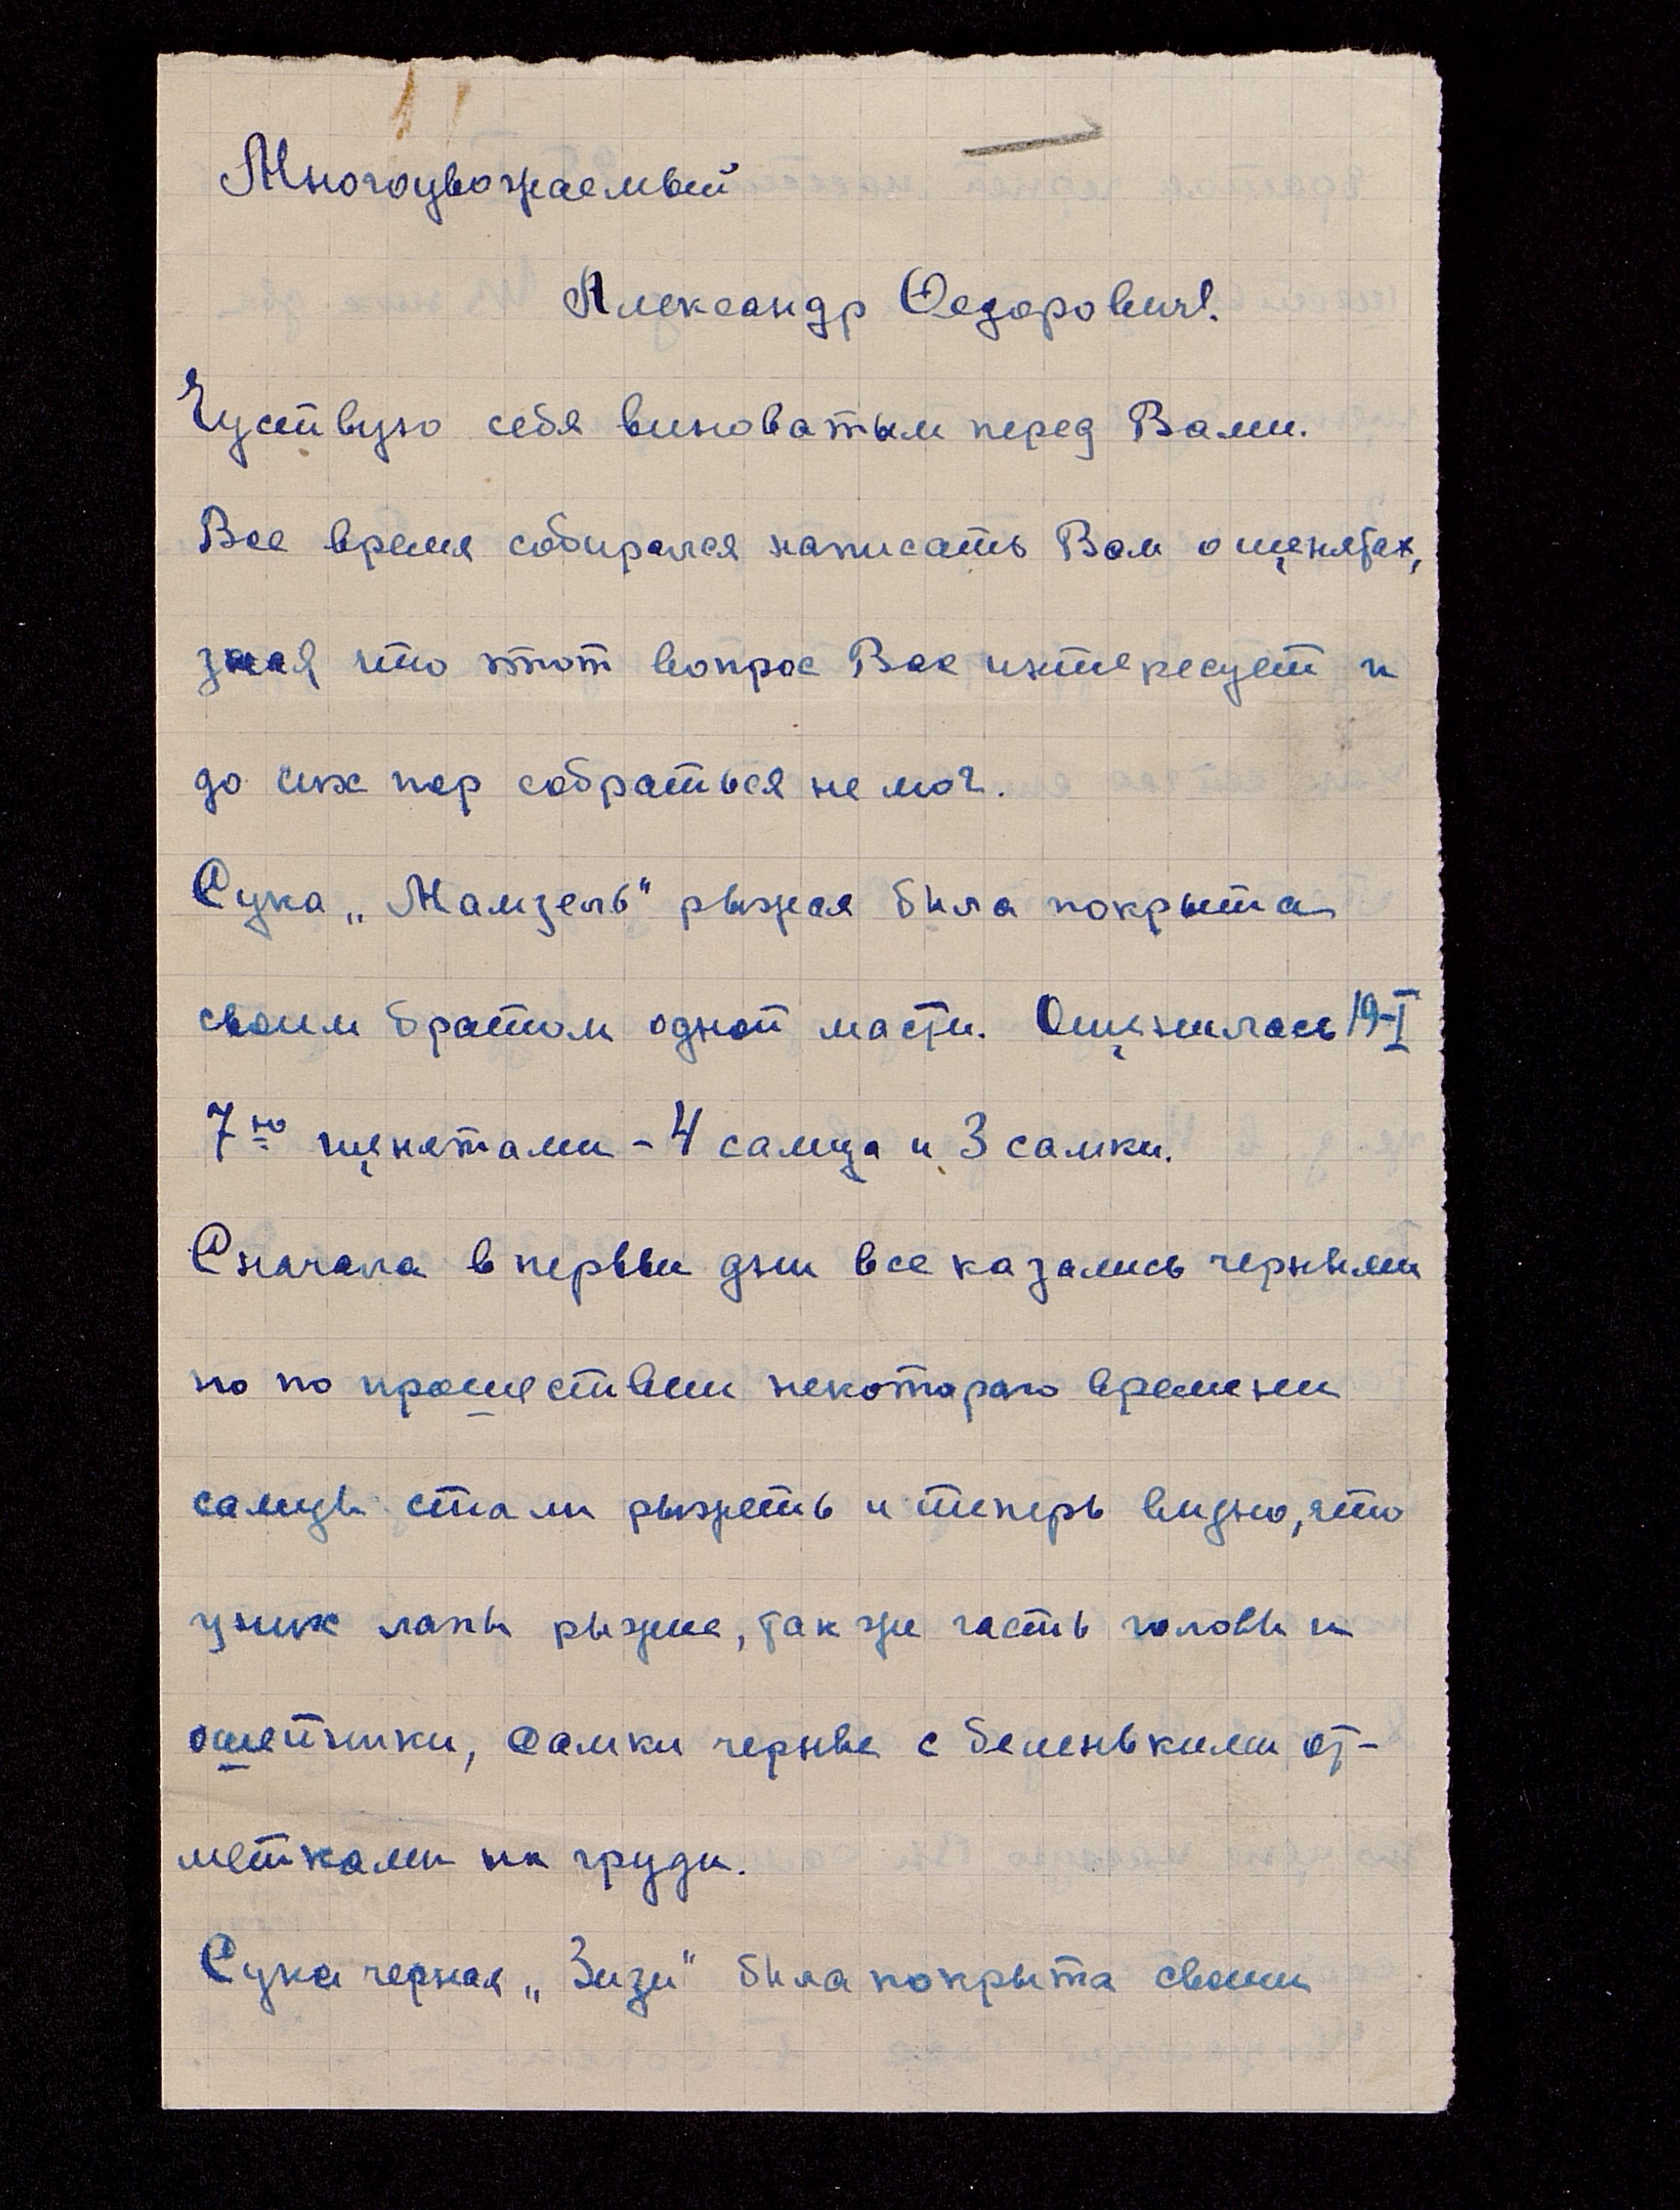 Многоуважаемый
Александр Федорович!
Чуствую себя виноватым перед Вами.
Все время собирался написать Вам о щенятах,
зная что этот вопрос Вас интересует и
до сих пор собраться не мог.
Сука „Мамзель“ рыжая была покрыта
своим братом одной масти. Ощенилась 19-I
7ю щенятами - 4 самца и 3 самки.
Сначала в первые дни все казались черными
но по прошествии некотораго времени
самцы стали рыжеть и теперь видно, что
у них лапы рыжие, так же часть головы и
ошейники, самки черные с беленькими от-
метками на груди.
Сука черная „Зизи“ была покрыта своим